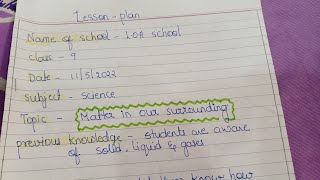 Lesson-plan
Name of school - IOA school
class - 9
Date - 11/5/2022
Subject - science
Topic - Matter in our surrounding
previous knowledge - students are aware
of solid, liquid & gases
know how